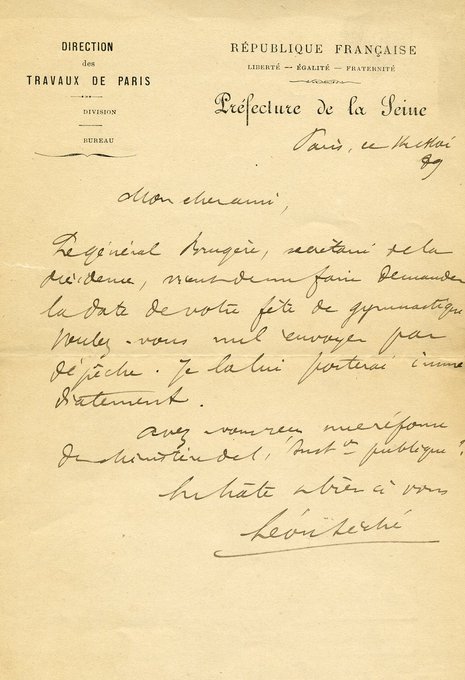 DIRECTION
des
TRAVAUX DE PARIS
DIVISION
BUREAU
RÉPUBLIQUE FRANÇAISE
LIBERTÉ — ÉGALITÉ — FRATERNITÉ
Préfecture de la Seine
Paris, ce Mai
89
Mon cher ami,
Le général Brugère, secrétaire de la
présidence, vient de me faire demander
la date de votre fête de gymnastique
voulez-vous me l'envoyer par
dépêche. Je la lui porterai imme
diatement.
avez vous reçu une réponse
du Ministère de l'Inston publique?
En hâte et bien à vous
Léon